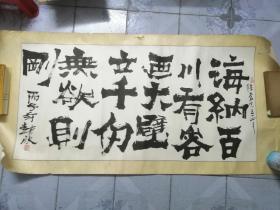 海納百
川有容
迺大壁
立千仞
無欲則
剛